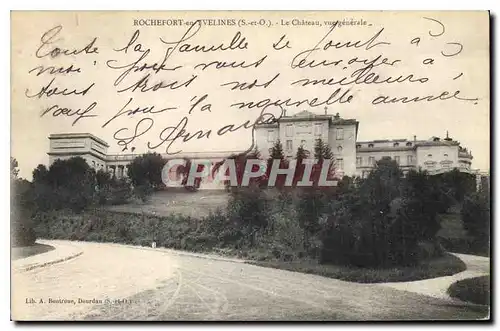 ROCHEFORT-en-YVELINES (S.-et-O.). - Le Château, vue générale
Toute la famille se joint à
moi pour vous envoyer à
tous trois nos meilleurs
vœux pour la nouvelle année
CPARPHIL
Lib. A. Boutroue, Dourdan (S.-et-O.)